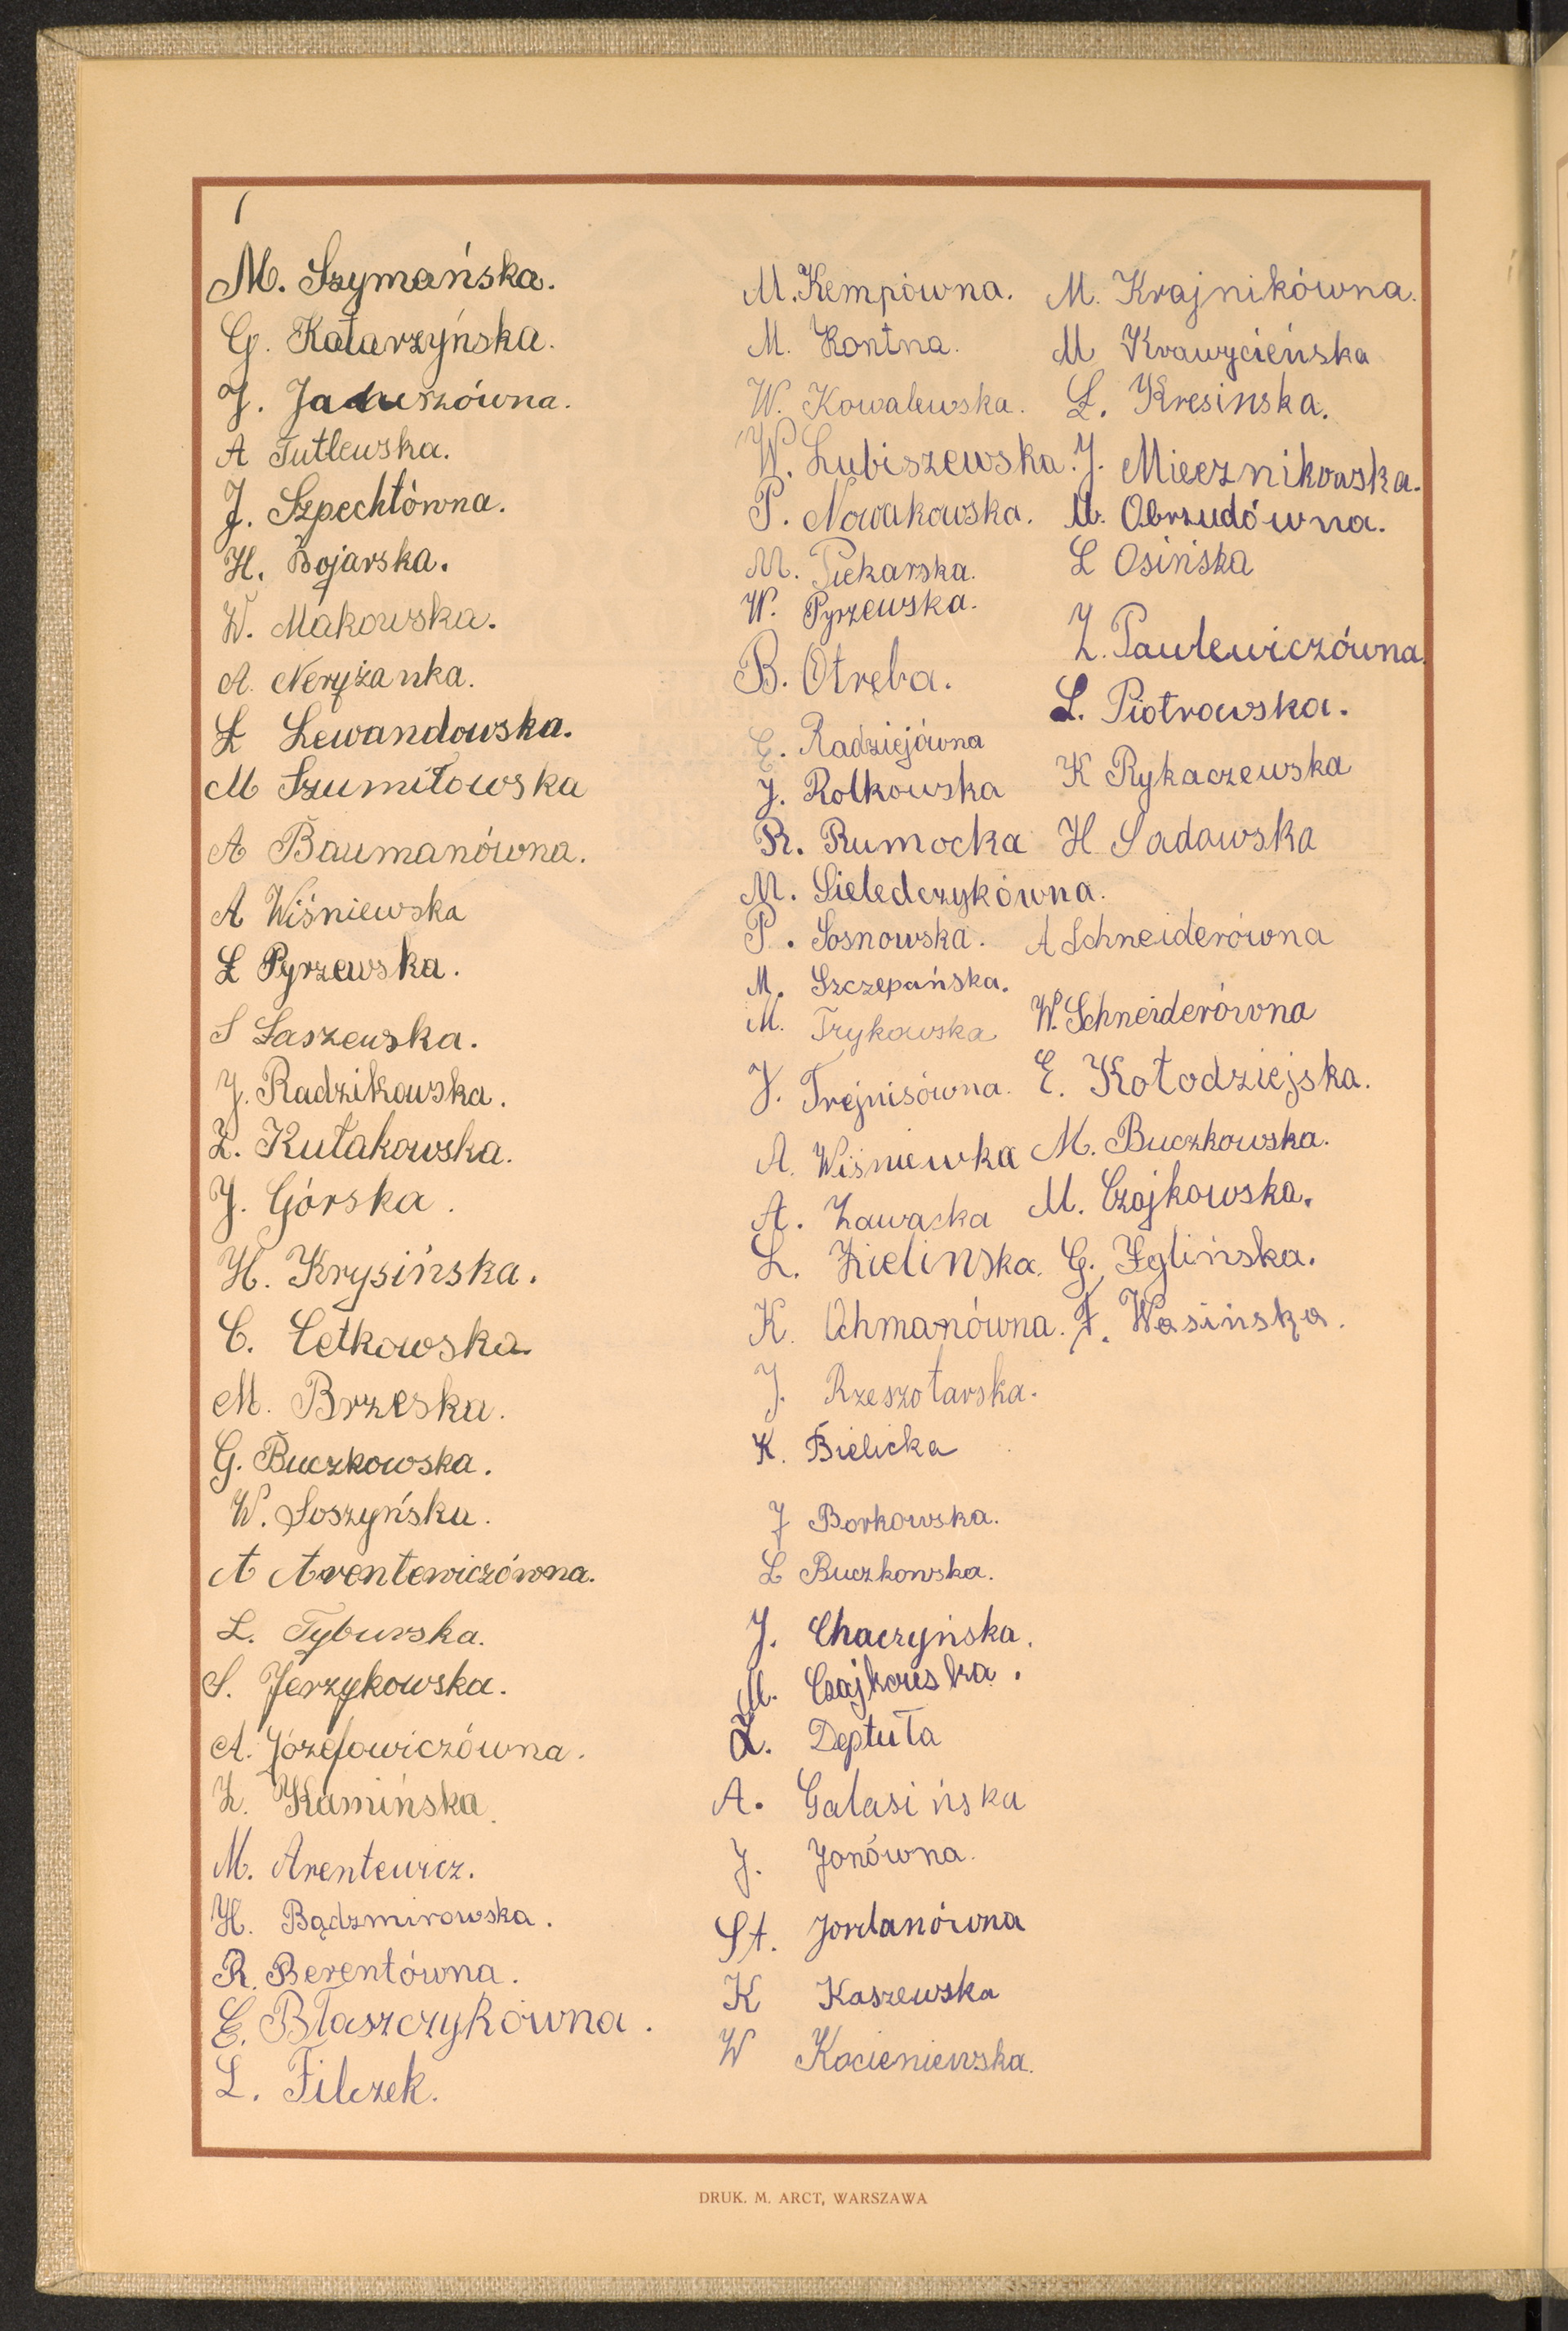 M. Szymańska.
G. Katarzyńska.
J. Januszówna.
A Tutlewska.
J. Szpechtówna.
H. Bojarska.
W. Makowska.
A. Neryżanka.
Ł Lewandowska.
M Szumiłowska
A Baumanówna.
A Wiśniewska
Ł Pyrzewska.
S Łaszewska.
J. Radzikowska.
Z. Kułakowska.
J. Górska.
H. Krysińska.
C. Cetkowska.
M. Brzeska.
G. Buczkowska.
W. Soszyńska.
A Arentewiczówna.
L. Tyburska.
S. Jerzykowska.
A. Józefowiczówna.
Z. Kamińska.
M. Arentewicz.
H. Bądzmirowska.
R. Berentówna.
E. Błaszczykówna.
L. Filczek.
M. Kempówna.
M. Kontna.
W. Kowalewska.
W. Lubiszewska.
P. Nowakowska.
M. Piekarska.
W. Pyrzewska.
B. Otręba.
E. Radziejówna
J. Rolkowska
R. Rumocka
M. Sieledczykówna.
P. Sosnowska.
M. Szczepańska.
M. Trykowska
J. Trejnisówna.
A. Wiśniewka
A. Zawacka
L. Zielinska.
K. Ochmanówna.
J. Rzeszotarska.
K. Bielicka
J Borkowska.
L Buczkowska.
J. Chaczyńska.
M. Czajkowska.
Z. Deptuła
A. Galasińska
J. Jonówna.
St. Jordanówna
K Kaszewska
W Kocieniewska.
M. Krajnikówna.
M Krawycieńska
L. Kresinska.
J. Miecznikowska.
M. Obrzudówna.
L Osińska
Z. Pawlewiczówna.
L. Piotrowska.
K Rykaczewska
H Sadowska
A Schneiderówna
W. Schneiderówna
E. Kołodziejska.
M. Buczkowska.
M. Czajkowska.
G. Iglińska.
F. Wasińska.
DRUK. M. ARCT, WARSZAWA